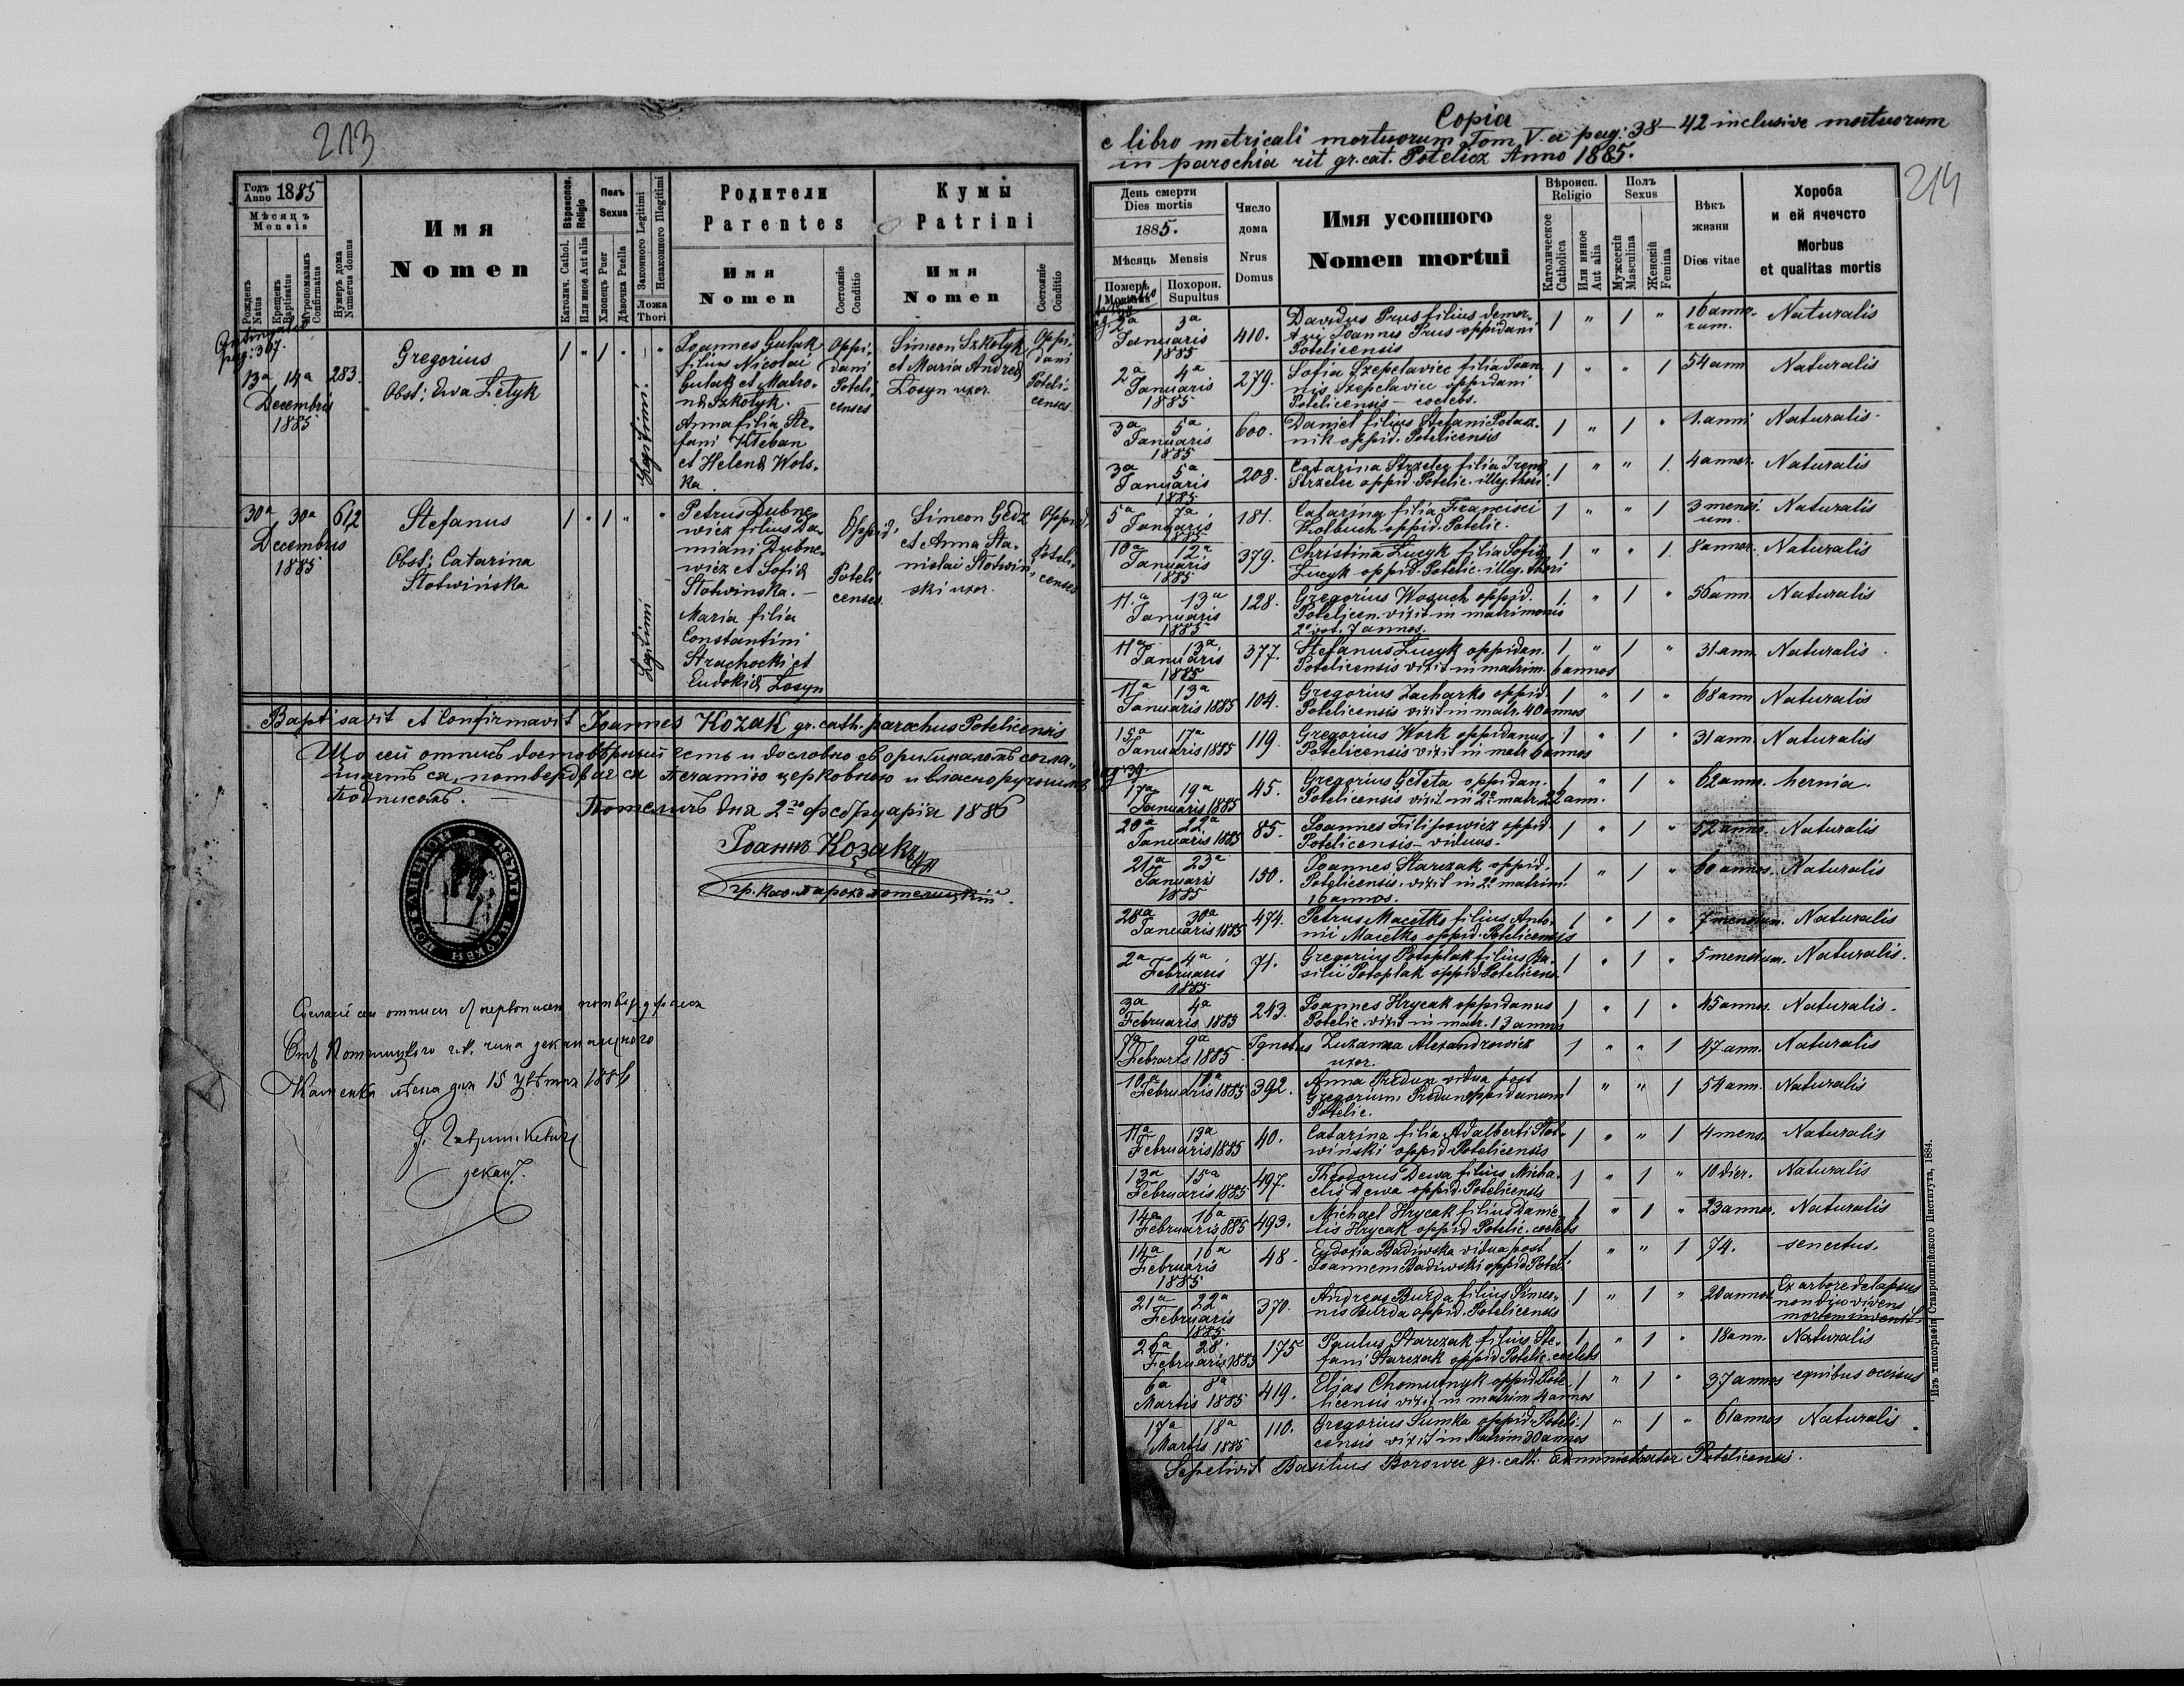 213
Годъ Anno 1885
Мѣсяцъ Mensis
Рожденъ Natus
Крещенъ Baptisatus
Мѵропомазанъ Confirmatus
Нумеръ дома Numerus domus
Имя
Nomen
Вѣроиспов. Religio
Католич. Cathol.
Или иное Aut alia
Полъ Sexus
Хлопецъ Puer
Дѣвочка Puella
Законного Legitimi
Незаконного Illegitimi
Ложа Thori
Родители
Parentes
Имя
Nomen
Состояніе Conditio
Кумы
Patrini
Имя
Nomen
Состояніе Conditio
pag: 367.
13a 14a
Decembris
1885
283.
Gregorius
Obst: Ewa Letyk
1 " 1 "
Legitimi
Joannes Gulak
filius Nicolai
Gulak et Matro-
na Szkotyk. —
Anna filia Ste-
fani Kteban
et Helena Wols-
ka
Oppi-
dani
Poteli-
censes
Simeon Szkotyk
et Maria Andrea
Losyn uxor.
Oppi-
dani
Poteli-
censes
30a 30a
Decembris
1885
612
Stefanus
Obst: Catarina
Stotwińska
1 " 1 "
Legitimi
Petrus Dubne-
wicz filius Da-
miani Dubne-
wicz et Sofia
Stotwinska. —
Maria filia
Constantini
Strachocki et
Eudokia Losyn
Oppid.
Poteli
censes.
Simeon Gedz
et Anna Sta-
nislai Stotwin-
ski uxor.
Oppid.
Poteli-
censes
Baptisavit et Confirmavit Joannes Kozak gr. cath. parochus Potelicensis
Що сей отписъ достовѣрный есть и дословно съ оригиналомъ согла-
шаетъ ся, потверждає ся Печатію церковною и власноручнымъ
Подписомъ. —
Потеличъ дня 2го Фебруарія 1886
Іоаннъ Козакъ
гр. кат. парохъ потелицкій.
деканъ.
214
Copia
e libro metricali mortuorum Tom V. a pag: 38–42 inclusive mortuorum
in parochia rit gr. cat. Potelicz Anno 1885.
День смерти
Dies mortis
1885.
Мѣсяць Mensis
Помер. Mortuus
Похорон. Sepultus
Число дома
Nrus Domus
Имя усопшого
Nomen mortui
Вѣроисп. Religio
Католическое Catholica
Или инное Aut alia
Полъ Sexus
Мужескій Masculina
Женскій Femina
Вѣкъ жизни
Dies vitae
Хороба
и ей ячечсто
Morbus
et qualitas mortis
2a 3a
Januaris
1885
410.
Davidus Prus filius demor-
tui Joannes Prus oppidani
Potelicensis
1 " 1 "
16 anno-
rum.
Naturalis
2a 4a
Januaris
1885
279.
Sofia Szepelavicz filia Joan-
nis Szepelavicz oppidani
Potelicensis – coelebs.
1 " " 1
54 ann
Naturalis
3a 5a
Januaris
1885
600.
Daniel filius Stefani Potasz-
nik oppid. Potelicensis
1 " 1 "
1. anni
Naturalis
3a 5a
Januaris
1885
208.
Catarina Strzelec filia Irena
Strzelec oppid. Potelic. illeg. thori.
1 " " 1.
4 annor.
Naturalis
5a 7a
Januaris
1885
181.
Catarina filia Francisci
Kolbuch oppid. Potelic.
1 " " 1
3 mensi-
um.
Naturalis
10a 12a
Januaris
1885
379.
Christina Lucyk filia Sofia
Lucyk oppid. Potelic. illeg. thori
1 " " 1.
8 annor.
Naturalis
11.a 13a
Januaris
1885
128.
Gregorius Wosuch oppid.
Potelicen. vixit in matrimonio
2o vot. 7 annos.
1. " 1 "
56 ann.
Naturalis
11a 13a
Januaris
1885
377.
Stefanus Lucyk oppidan.
Potelicensis vixit in matrim. 6 annos
1 " 1 "
31. ann.
Naturalis
11a 13a
Januaris 1885
104.
Gregorius Zacharko oppid.
Potelicensis vixit in matr. 40 annos
1 " 1 "
68 ann
Naturalis
15a 17a
Januaris 1885
119.
Gregorius Work oppidanus
Potelicensis vixit in matr 6 annos
1 " 1 "
31 ann.
Naturalis
pag 39.
17a 19a
Januaris 1885
45.
Gregorius Geteta oppidan.
Potelicensis vixit in 2o matr 22 ann.
1 " 1 "
62 ann.
hernia.
20a 22a
Januaris 1885
85.
Joannes Filipowicz oppid.
Potelicensis – viduus.
1 " 1 "
52 anno.
Naturalis
21a 23a
Januaris
1885
150.
Joannes Starczak oppid.
Potelicensis. vixit in 2o matrim.
16 annos.
1 " 1 "
60 annos.
Naturalis
28a 30a
Januaris 1885
474.
Petrus Macetko filius Anto-
nii Macetko oppid. Potelicensis
1 " 1 "
7 mensium.
Naturalis
2a 4a
Februaris
1885
71.
Gregorius Potoplak filius Ba-
silii Potoplak oppid Potelicens.
1 " 1 "
5 mensium.
Naturalis.
3a 4a
Februaris 1885
243.
Joannes Hrycak oppidanus
Potelic. vixit in matr. 13 annos
1 " 1 "
45 annos.
Naturalis.
7a 9a
Februaris 1885
Ignotus
Zuzanna Alexandrowicz
uxor.
1 " " 1
47 ann.
Naturalis
10a 12a
Februaris 1885
392.
Anna Predun vidua post
Gregorium Predun oppidanum
Potelic.
1 " " 1
54 ann.
Naturalis
11a 13a
Februaris 1885
40.
Catarina filia Adalberti Stot-
wiński oppid Potelicensis
1 " " 1
4 mens.
Naturalis
13a 15a
Februaris 1885
497.
Theodorus Dewa filius Micha-
elis Dewa oppid. Potelicensis
1 " 1 "
10 dier.
Naturalis
14a 16a
Februaris 1885
493.
Michael Hrycak filius Danie-
lis Hrycak oppid Potelic. coelebs
1 " 1 "
23 annos.
Naturalis
14a 16a
Februaris
1885
48.
Eudoxia Badiwska vidua post
Joannem Badiwski oppid Poteli
1 " " 1
74.
senectus.
21a 22a
Februaris
1885
370.
Andreas Burda filius Simeo-
nis Burda oppid. Potelicensis
1 " 1 "
20 annos
Ex arbore delapsus
non diu vivens
mortem invenit.
26a 28.
Februaris 1885
175
Paulus Starczak filius Ste-
fani Starczak oppid Potelic. coelebs
1 " 1 "
18 ann.
Naturalis
6a 8a
Martis 1885
419.
Elias Chomutnyk oppid Pote-
licensis vixit in matrim 4 annos
1 " 1 "
37 annos
equibus occisus
17a 18a
Martis 1885
110.
Gregorius Sumka oppid. Poteli-
censis vixit in Matrim 30 annos
1 " 1 "
61 annos
Naturalis
Sepelivit Basilius Borowec gr. cath. Administrator Potelicensis.
Изъ типографіи Ставропигійского Института, 1884.